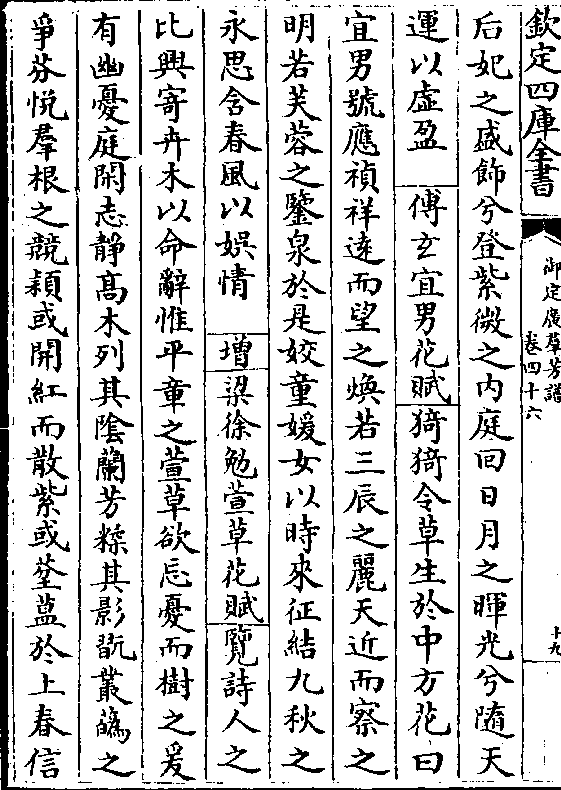 欽定四庫全書
御定廣羣芳譜
卷四十六
十九
后妃之盛飾兮登紫微之内庭回日月之暉光兮隨天
運以虛盈 傅玄宜男花賦 猗猗令草生於中方花曰
宜男號應禎祥逺而望之煥若三辰之麗天近而察之
明若芙蓉之鑒泉於是姣童媛女以時來征結九秋之
永思含春風以娯情 增梁徐勉萱草花賦 覽詩人之
比興寄卉木以命辭惟平章之萱草欲忘憂而樹之爰
有幽憂庭閑志静髙木列其隂蘭芳糅其影翫叢蘤之
爭芬悦羣根之競穎或開紅而散紫或莖藍於上春信